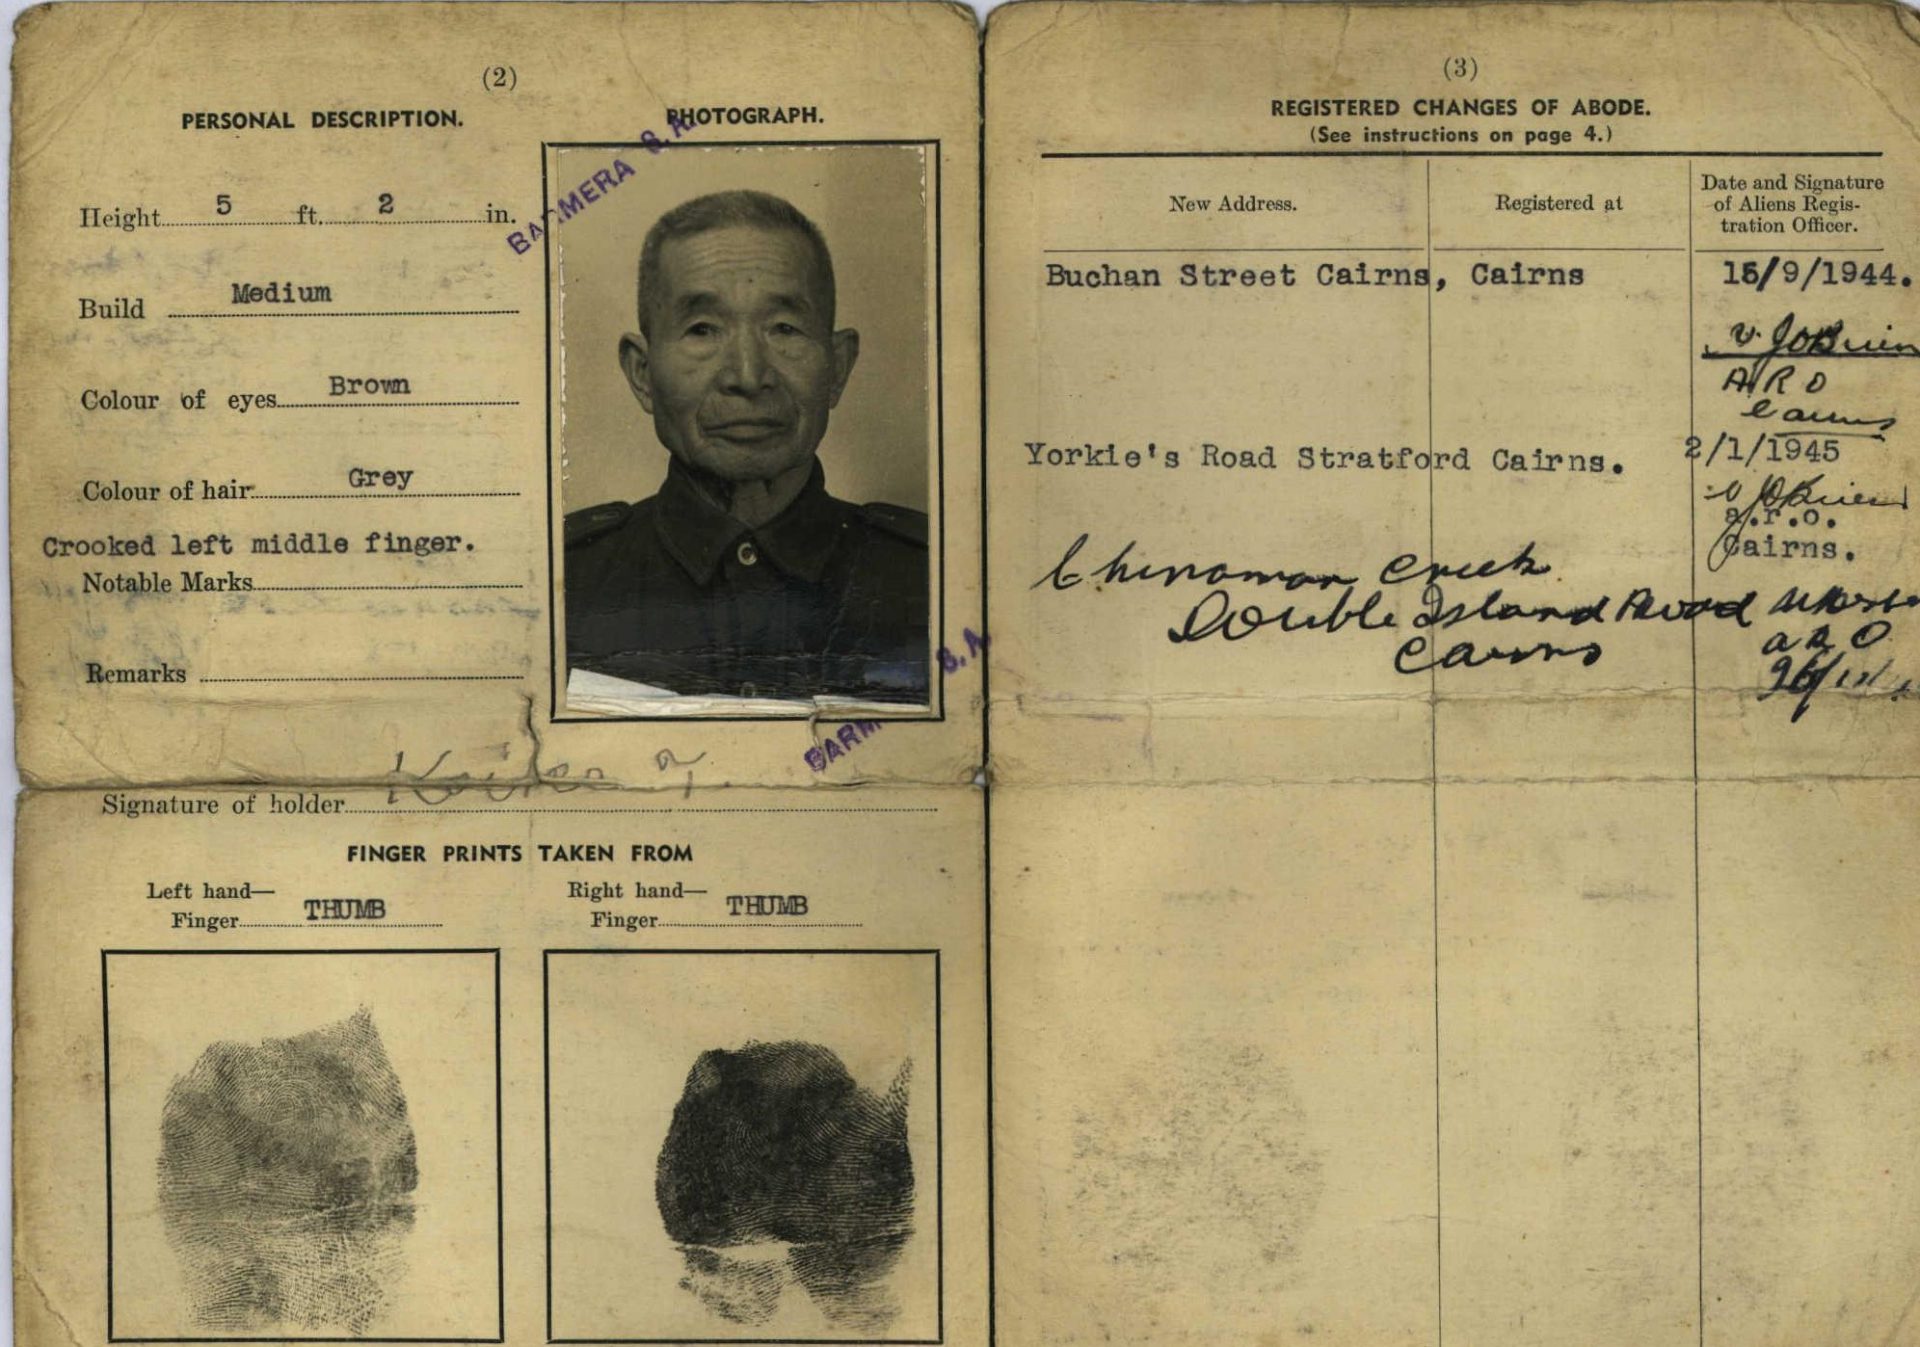 (2)
PERSONAL DESCRIPTION.
PHOTOGRAPH.
BARMERA S.A.
Height 5 ft. 2 in.
Build Medium
Colour of eyes Brown
Colour of hair Grey
Crooked left middle finger.
Notable Marks
Remarks
S.A.
BARM
Signature of holder
FINGER PRINTS TAKEN FROM
Left hand—
Finger THUMB
Right hand—
Finger THUMB
(3)
REGISTERED CHANGES OF ABODE.
(See instructions on page 4.)
New Address.
Registered at
Date and Signature
of Aliens Regis-
tration Officer.
Buchan Street Cairns, Cairns 15/9/1944.
V. J OBrien
A R O
Cairns
Yorkie's Road Stratford Cairns. 2/1/1945
V JOBrien
a.r.o.
Cairns.
Chinaman Creek
Double Island Road
Cairns
A R O